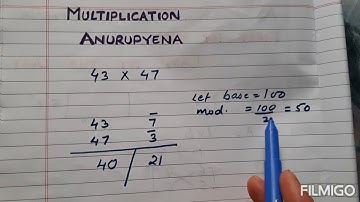 MULTIPLICATION
ANURUPYENA
43 X 47
Let base = 100
mod. = 100/2 = 50
43 7̅
47 3̅
40 | 21
FILMIGO